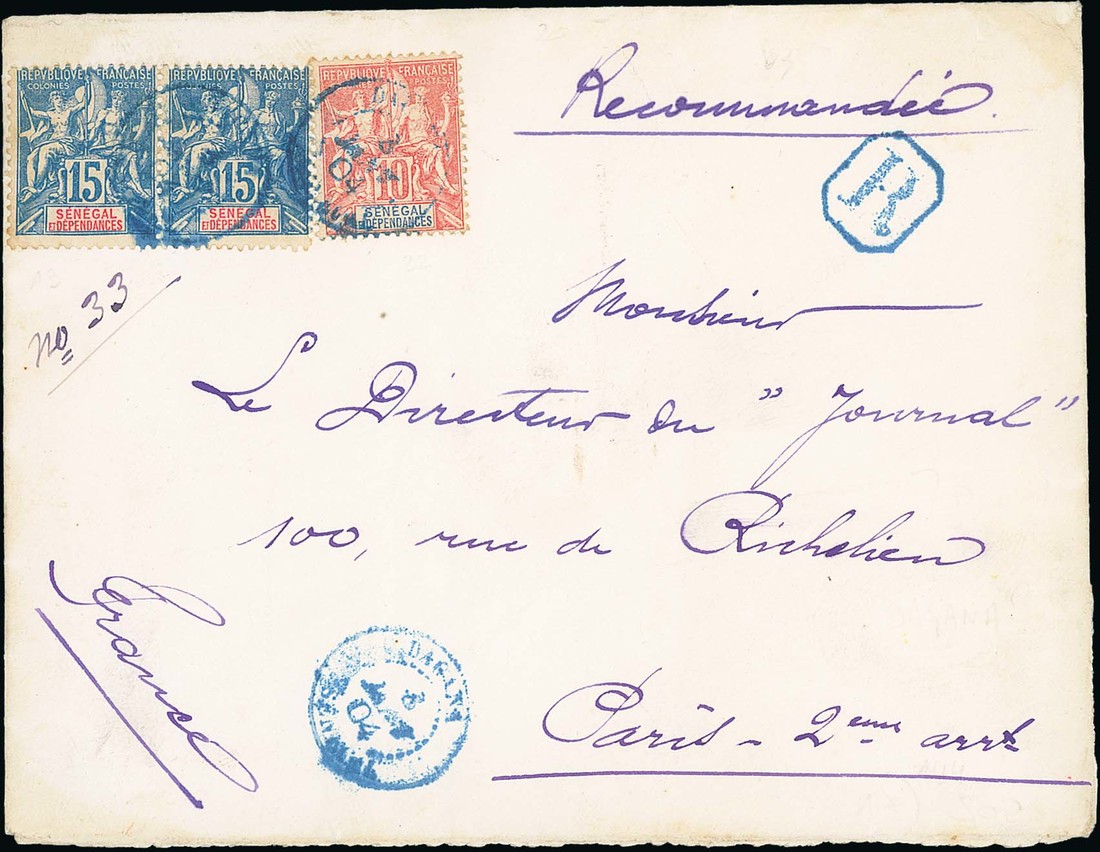 REPVBLIQVE FRANÇAISE
COLONIES POSTES
15
SÉNÉGAL
ET DÉPENDANCES
REPVBLIQVE FRANÇAISE
COLONIES POSTES
15
SÉNÉGAL
ET DÉPENDANCES
REPVBLIQVE FRANÇAISE
COLONIES POSTES
10
SÉNÉGAL
ET DÉPENDANCES
Recommandée.
R
no 33
Monsieur
Le Directeur du "Journal"
100, rue de Richelieu
Paris - 2eme arrt
France
DAGANA
04